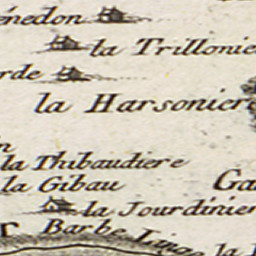 énedon
la Trillonie
rde
la Harsoniere
n
la Thibaudiere
la Gibau
Ga
la Jourdinier
r Barbe Lino
la